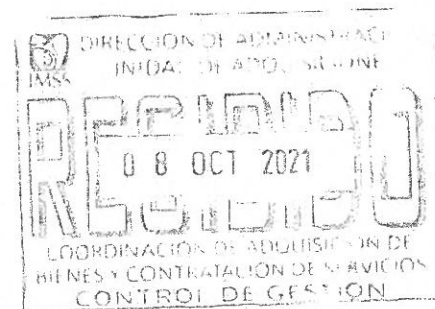 IMSS
DIRECCIÓN DE ADMINISTRACI
UNIDAD DE ADQUISICIONE
RECIBIDO
08 OCT 2021
COORDINACIÓN DE ADQUISICIÓN DE
BIENES Y CONTRATACIÓN DE SERVICIOS
CONTROL DE GESTIÓN